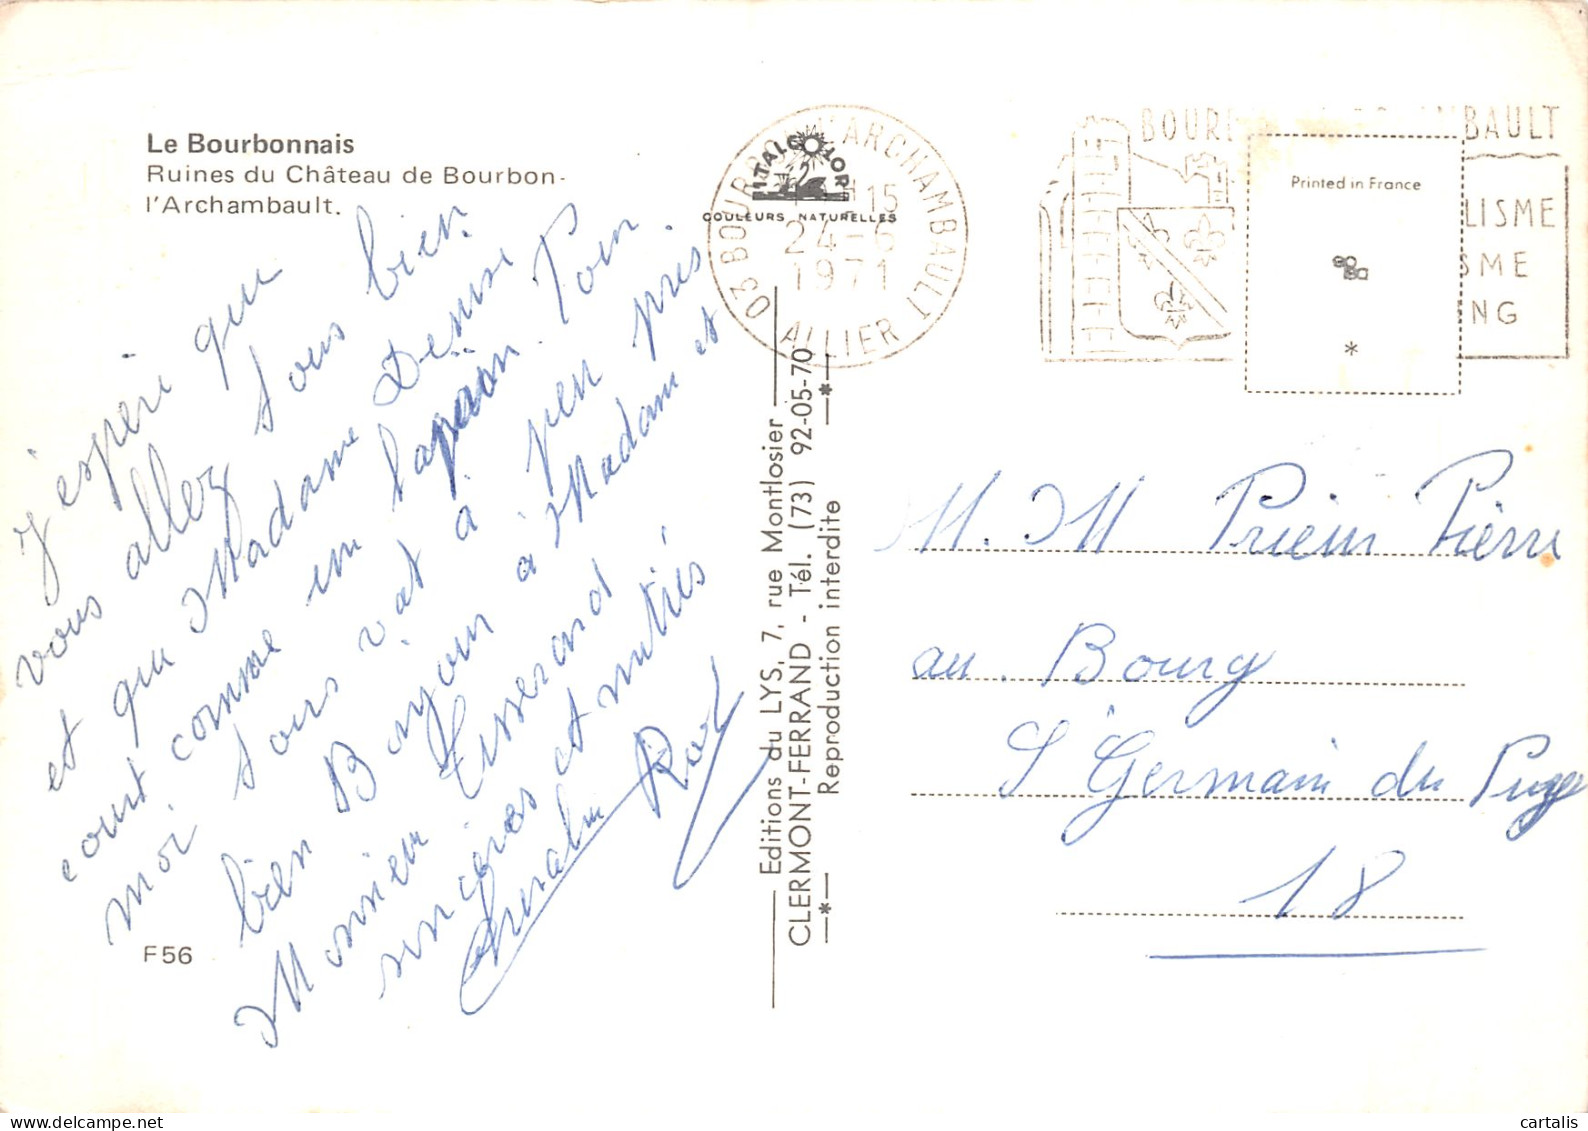 Le Bourbonnais
Ruines du Château de Bourbon-
l'Archambault.
j'espère que
vous allez tous bien
et que Madame Denise
court comme un lapain Pour
moi tours vat à peu près
bien Bonjour à Madam et
Monsieur Tisserand
sincères et mitiés
F56
Editions du LYS, 7, rue Montlosier
CLERMONT-FERRAND - Tél. (73) 92-05-70
Reproduction interdite
ITALCOLOR
COULEURS NATURELLES
03 BOURBON L'ARCHAMBAULT
15
24-6
1971
ALLIER
BOUR BAULT
LISME
SME
NG
Printed in France
*
M. M Prieur Pierre
au Bourg
St Germain du Puy
18
cartalis
www.delcampe.net